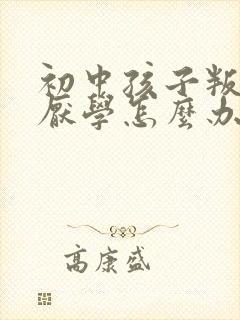 初中孩子叛
厭學怎麼办
高康盛